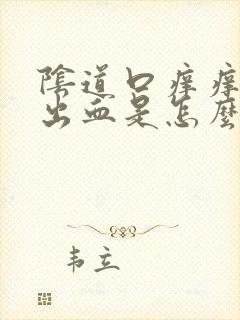 陰道口痒痒
出血是怎麼
韦立